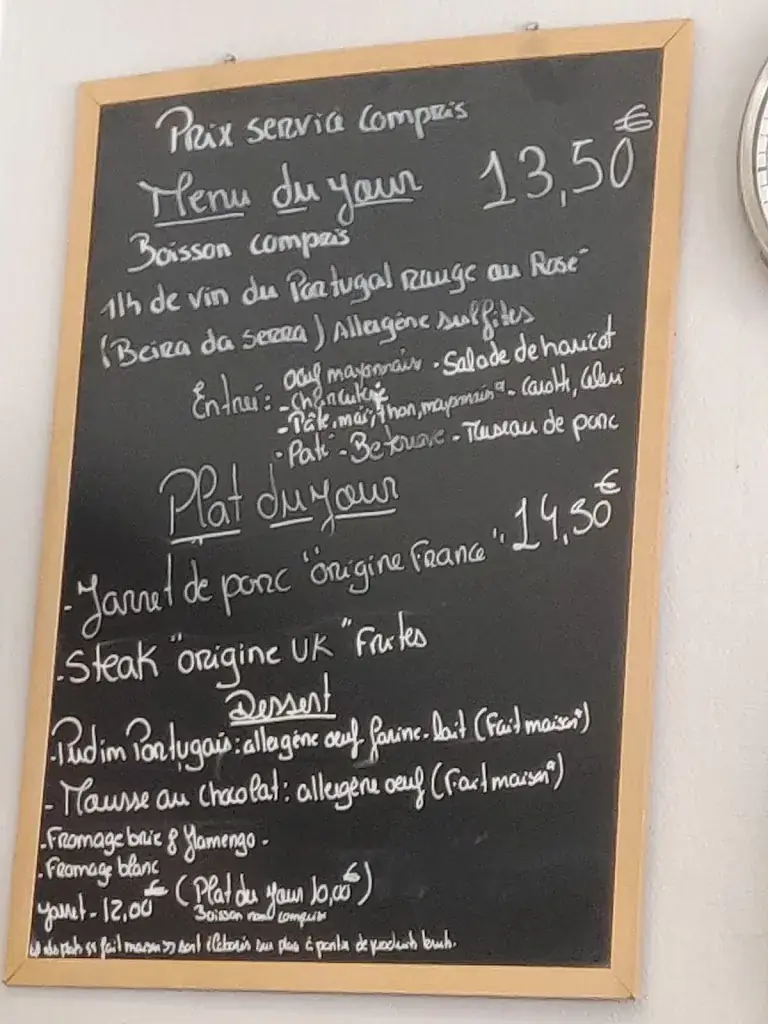 Prix service compris
Menu du jour 13,50€
Boisson compris
1/4 de vin du Portugal rouge ou Rosé
(Beira da serra) Allergène sulfites
Entrée: oeuf mayonnaise - Salade de haricot
- charcuterie
- Pâte, maïs, thon, mayonnaise - Carotte, Celeri
- Paté - Betterave - Museau de porc
Plat du jour
- Jarret de porc "origine France" 14,50€
- Steak "origine UK" Frites
Dessert
- Pudim Portugais: allergène oeuf farine. lait (Fait maison*)
- Mousse au chocolat: allergène oeuf (Fait maison*)
- Fromage brie & flamengo -
- Fromage blanc
jarret - 12,00€ (Plat du jour 10,00€)
Boisson non compris
plats << fait maison >> sont élaborés sur place à partir de produits bruts.